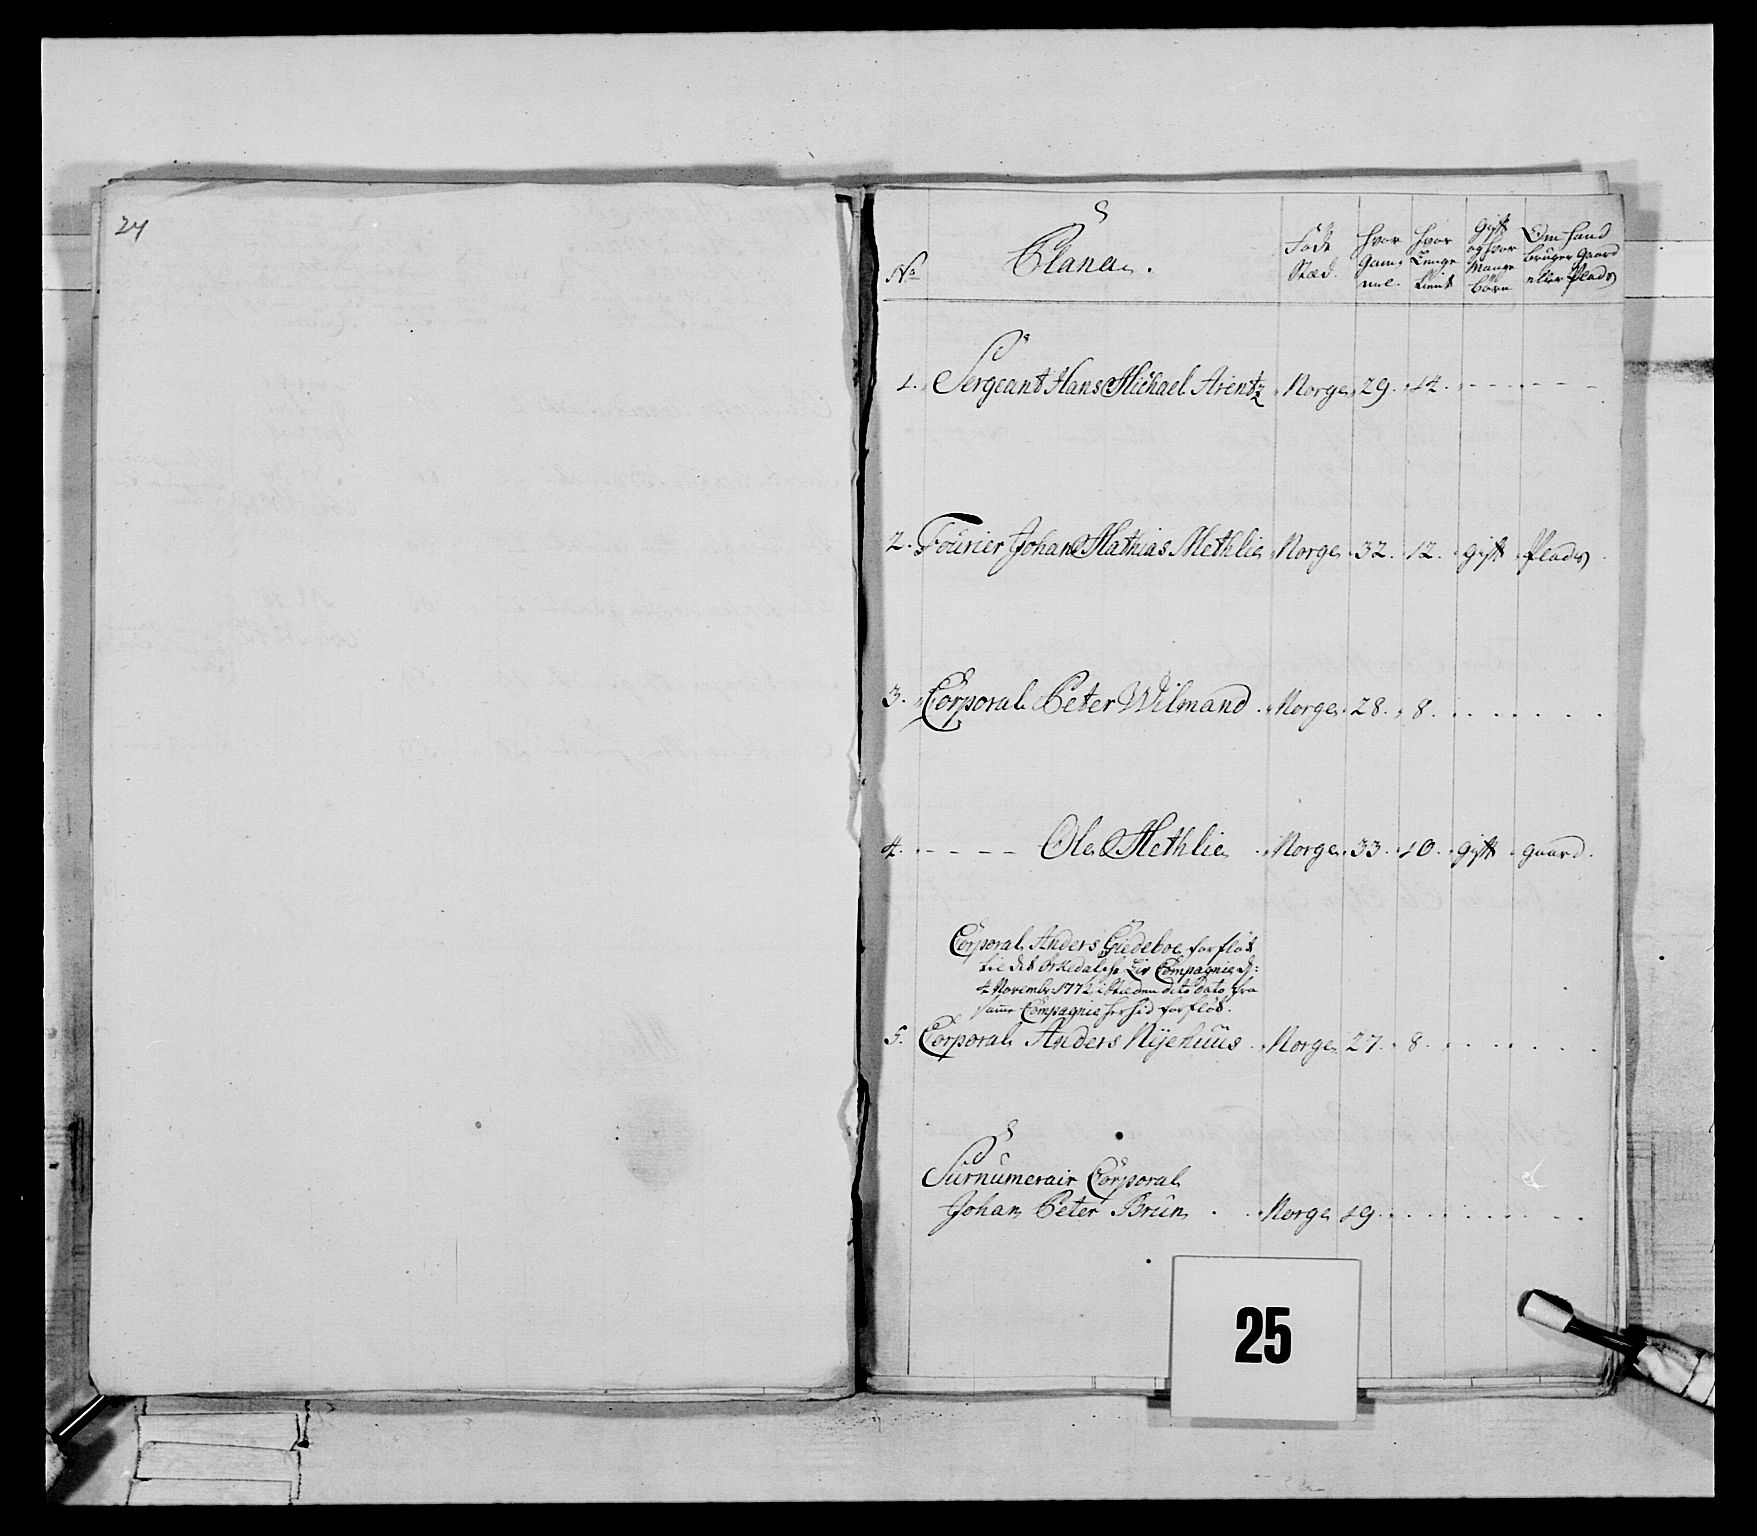 24
No
Etana.
Føde Stæd.
Hvor Gammel.
Hvor Lenge tient
Gift og hvor Mange børn
Om hand bruger Gaard eller Plads
1. Sergeant Hans Michael Arentz Norge 29. 14.
2. Fourier Johan Mathias Methlie Norge 32. 12. gift Plads
3. Corporal Peter Wilmand Norge 28. 8.
4. Ole Methlie Norge 33. 10. gift gaard.
Corporal Anders Giedeboe forfløt
til det Orkedalske Liv Compagnie d:
4 Novembr: 1772, i Stæden dito dato fra
samme Compagnie herhid forfløt.
5. Corporal Anders Nyehuus Norge 27. 8.
Surnumerair Corporal
Johan Peter Brun Norge 19.
25